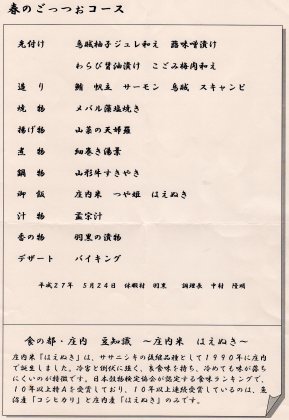 春のごっつぉコース
先付け 烏賊柚子ジュレ和え 蕗味噌漬け
わらび醤油漬け こごみ梅肉和え
造り 鮪 帆立 サーモン 烏賊 スキャンビ
焼物 メバル藻塩焼き
揚げ物 山菜の天婦羅
煮物 細巻き湯葉
鍋物 山形牛すきやき
御飯 庄内米 つや姫 はえぬき
汁物 孟宗汁
香の物 羽黒の漬物
デザート バイキング
平成27年 5月24日 休暇村 羽黒 調理長 中村 隆明
食の都・庄内 豆知識 ～庄内米 はえぬき～
庄内米「はえぬき」は、ササニシキの後継品種として1990年に庄内
で誕生しました。冷害と倒伏に強く、良食味を持ち、冷めても味が落ち
にくいのが特徴です。日本穀物検定協会が認定する食味ランキングで、
10年以上特Aを受賞しており、10年以上連続受賞しているのは、魚
沼産「コシヒカリ」と庄内産「はえぬき」のみです。